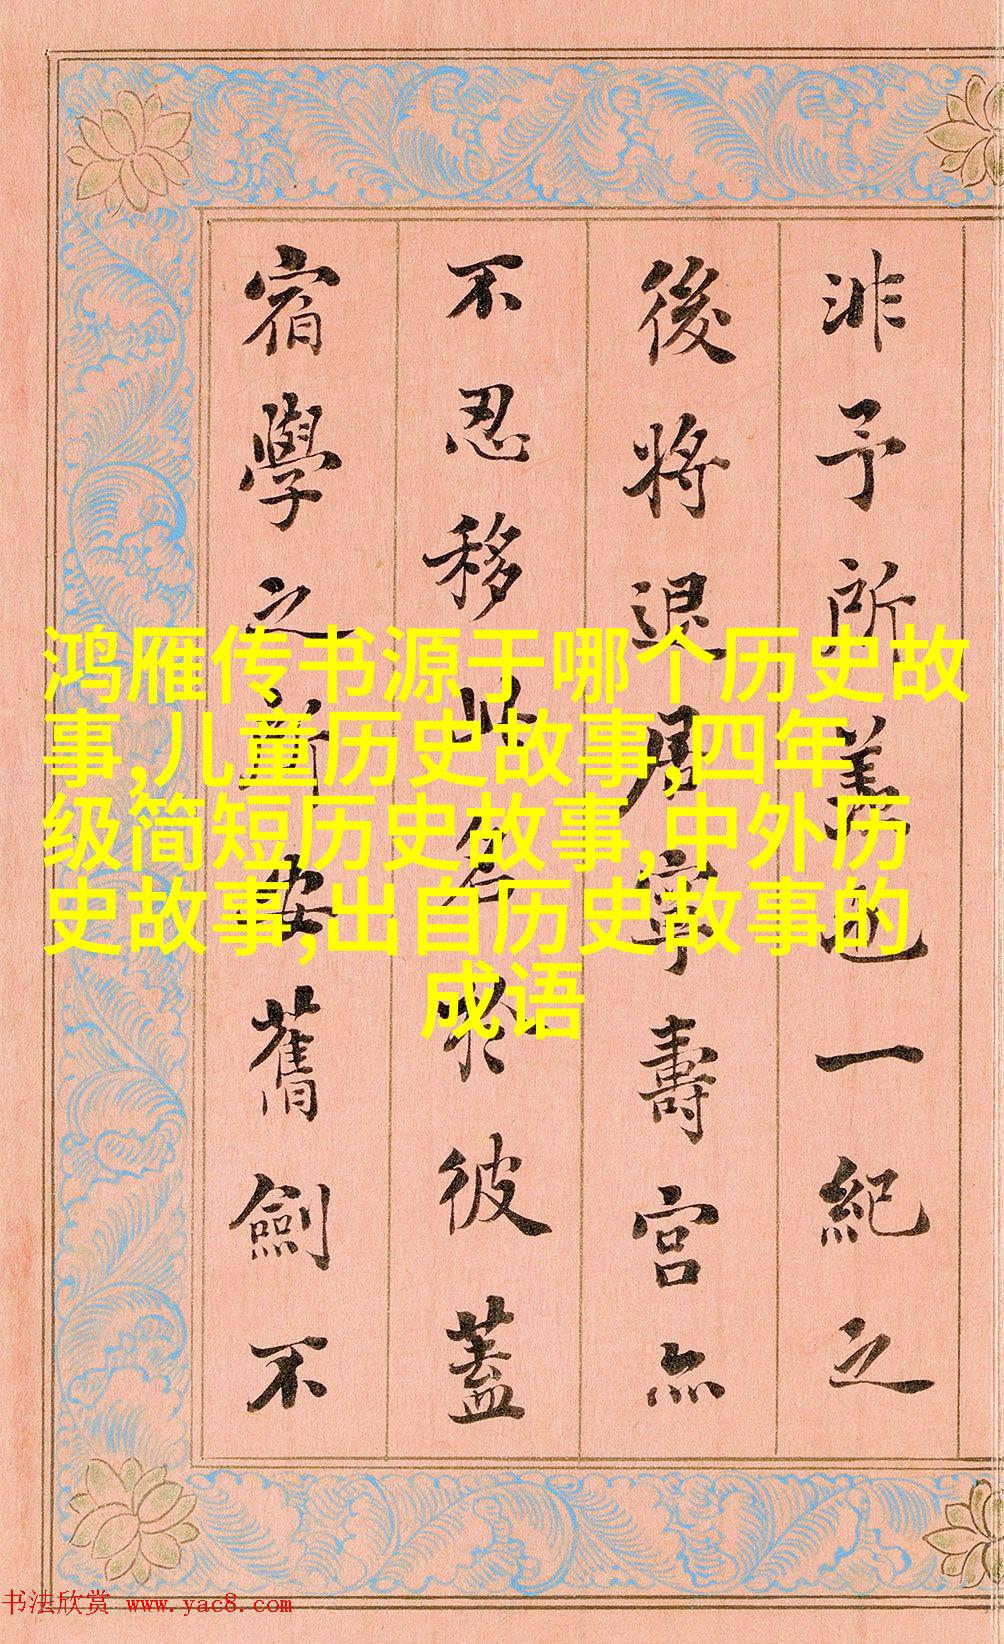 非予所羨也一紀之
後將退居寧壽宮亦
不忍移此名於彼蓋
宿學之所安舊劍不
鸿雁传书源于哪个历史故
事,儿童历史故事,四年
级简短历史故事,中外历
史故事,出自历史故事的
成语
书法欣赏 www.yac8.com